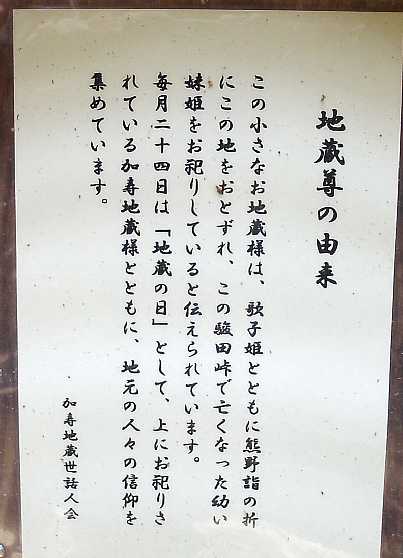 地蔵尊の由来
この小さなお地蔵様は、歌子姫とともに熊野詣の折
にこの地をおとずれ、この駿田峠で亡くなった幼い
妹姫をお祀りしていると伝えられています。
毎月二十四日は「地蔵の日」として、上にお祀りさ
れている加寿地蔵様とともに、地元の人々の信仰を
集めています。
加寿地蔵世話人会